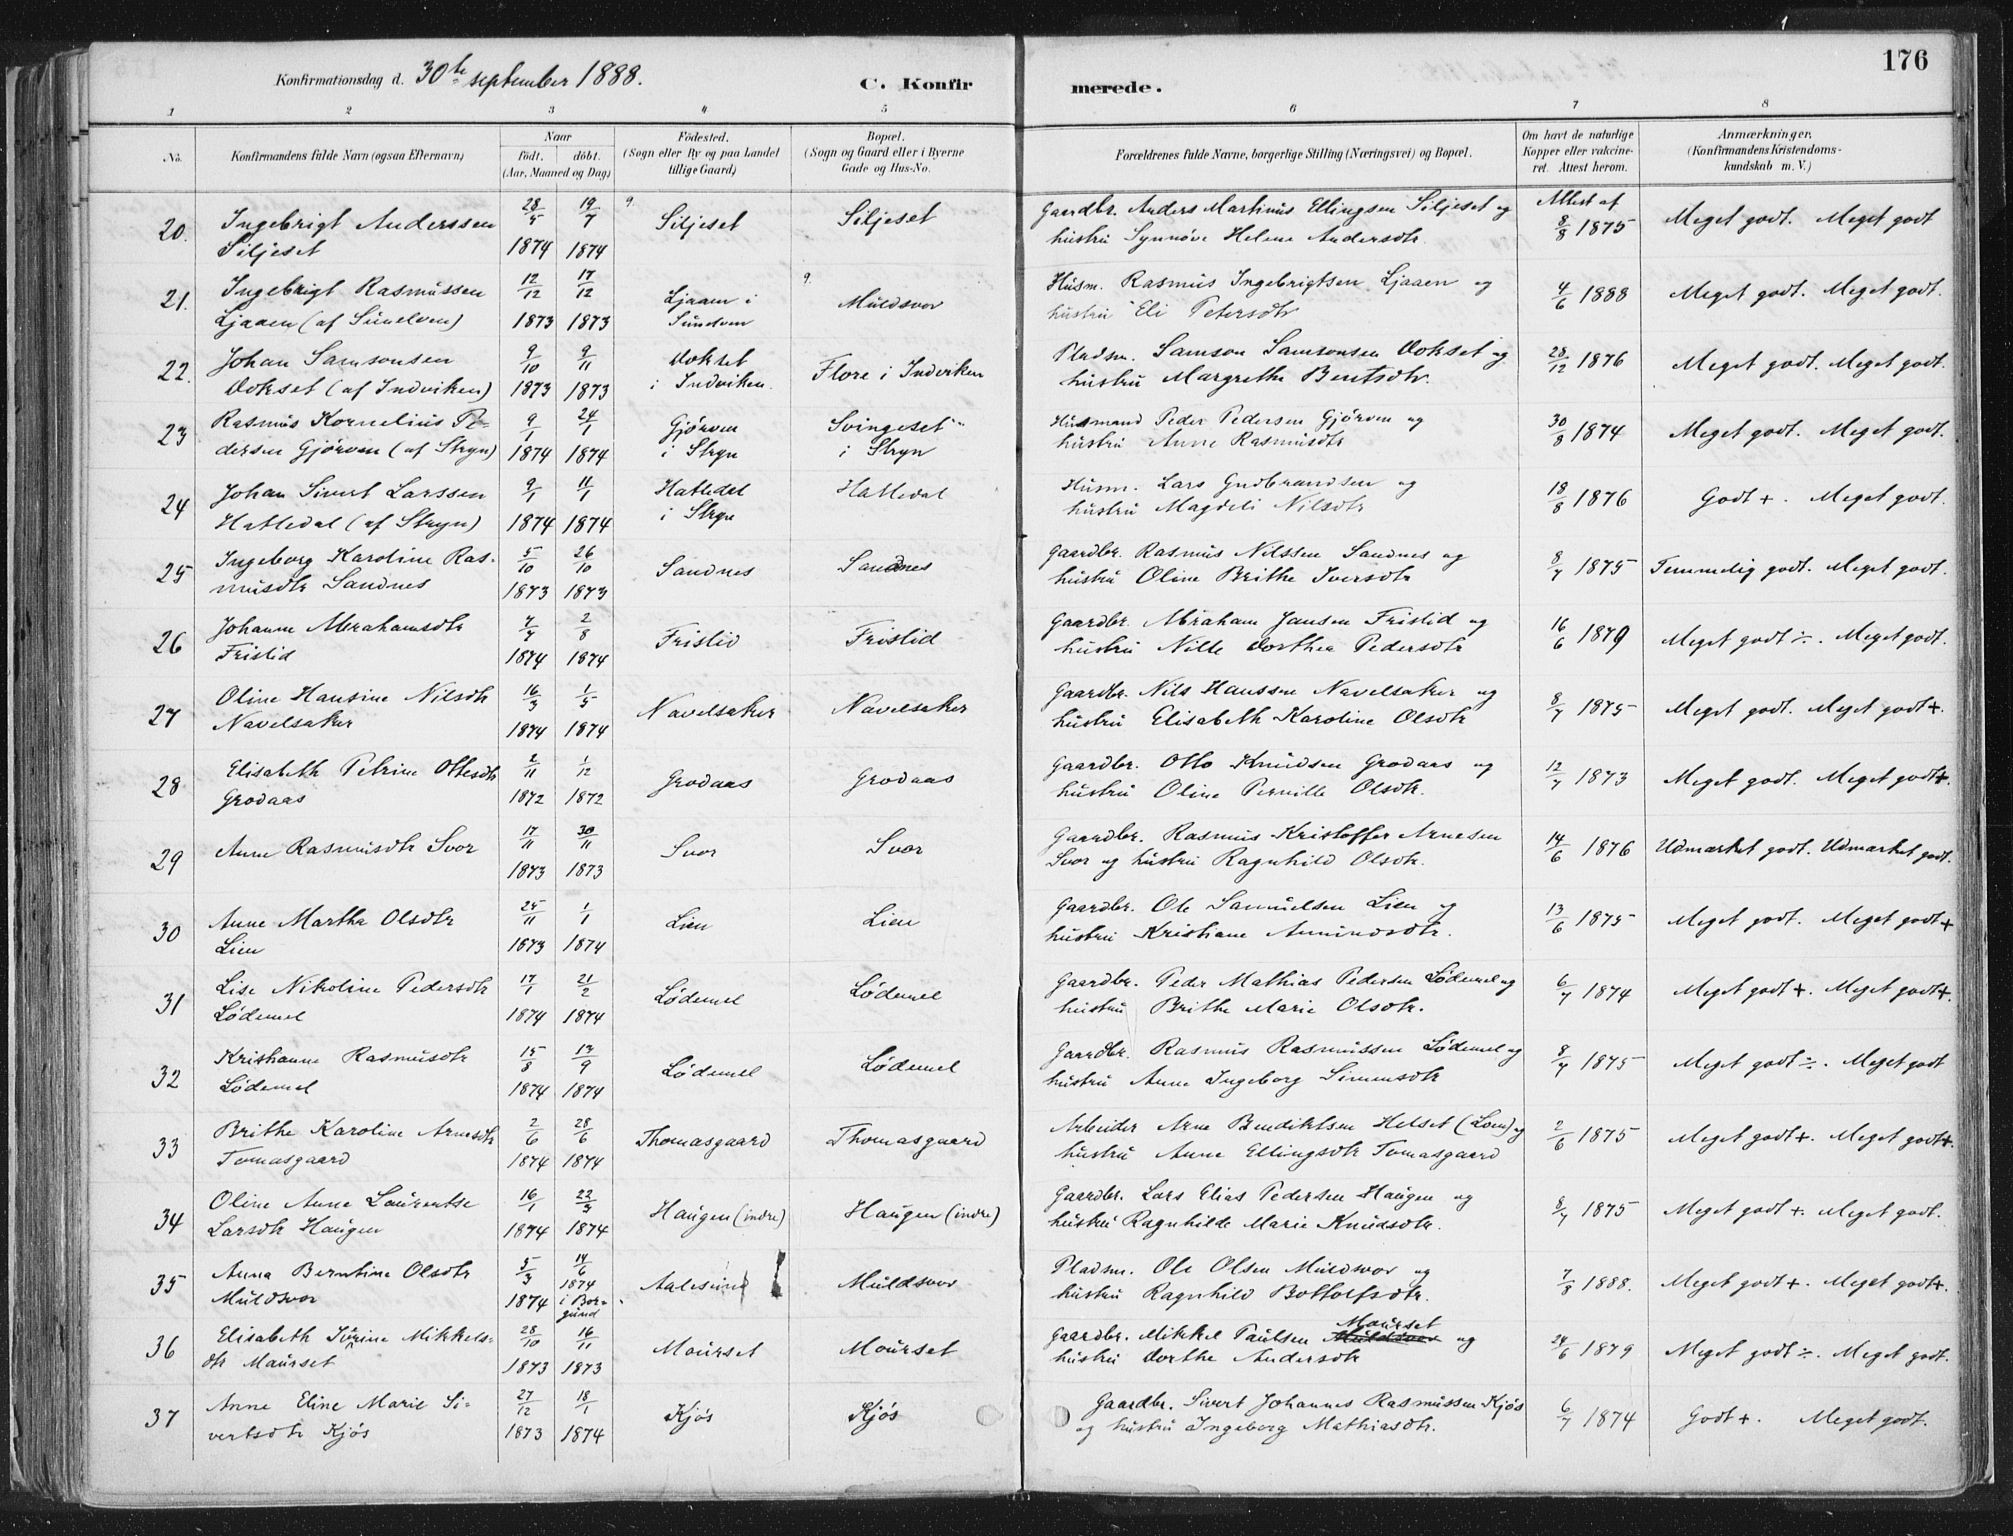 176
Konfirmationsdag d. 30te september 1888.
C. Konfirmerede.
1 2 3 4 5 6 7 8
No. Konfirmandens fulde Navn (ogsaa Efternavn) Naar födt. döbt. (Aar, Maaned og Dag) Födested. (Sogn eller By og paa Landet tillige Gaard) Bopæl. (Sogn og Gaard eller i Byerne Gade og Hus-No. Forældrenes fulde Navne, borgerlige Stilling (Næringsvei) og Bopæl. Om havt de naturlige Kopper eller vakcineret. Attest herom. Anmærkninger, (Konfirmandens Kristendomskundskab m. V.)
20. Ingebrigt Anderssen 28/5 19/7 Siljeset Siljeset Gaardbr. Anders Martinus Ellingsen Siljeset og Attest af 8/8 1875 Meget godt. Meget godt
Siljeset 1874 1874 hustru Synnöve Helene Andersdtr.
21. Ingebrigt Rasmussen 12/12 17/12 Ljaaen i Muldsvor Husm. Rasmus Ingebrigtsen Ljaaen og 4/6 1888 Meget godt. Meget godt.
Ljaaen (af Sunelven) 1873 1873 hustru Eli Petersdtr
22. Johan Samsonsen 9/10 9/11 Dokset Flore i Indviken Pladsm. Samson Samsonsen Dokset og 28/12 1876 Meget godt. Meget godt.
Dokset (af Indviken) 1873 1873 i Indviken. hustru Margrethe Bentsdtr.
23 Rasmus Kornelius Pe- 9/1 24/1 Gjörven Svingeset Husmand Peder Pedersen Gjörven og 30/8 1874 Meget godt. Meget godt.
dersen Gjörven (af Stryn) 1874 1874 i Stryn i Stryn hustru Anne Rasmusdtr
24 Johan Sivert Larssen 9/1 11/1 Hatledal Hatledal Husm. Lars Gudbrandsen og 18/8 1876 Godt +. Meget godt.
Hatledal (af Stryn) 1874 1874 i Stryn hustru Magdeli Nilsdtr
25 Ingeborg Karoline Ras- 5/10 26/10 Sandnes Sandnes Gaardbr. Rasmus Nilssen Sandnes og 8/7 1875 Temmelig godt. Meget godt.
musdtr Sandnes 1873 1873 hustru Oline Brithe Iversdtr
26 Johanne Abrahamsdtr 7/7 2/8 Fristid Fristid Gaardbr. Abraham Jansen Fristid og 16/6 1879 Meget godt ÷. Meget godt.
Fristid 1874 1874 hustru Nille Dorthea Pedersdtr
27 Oline Hansine Nilsdtr 16/3 1/5 Navelsaker Navelsaker Gaardbr. Nils Hanssen Navelsaker og 8/7 1875 Meget godt. Meget godt+.
Navelsaker 1874 1874 hustru Elisabeth Karoline Olsdtr
28 Elisabeth Petrine Ottesdtr 2/11 1/12 Grodaas Grodaas Gaardbr. Otto Knudsen Grodaas og 12/7 1873 Meget godt. Meget godt+.
Grodaas 1872 1872 hustru Oline Pernille Olsdtr.
29 Anne Rasmusdtr Svor 17/11 30/11 Svor Svor Gaardbr. Rasmus Kristoffer Arnesen 14/6 1876 Udmærket godt. Udmærket godt.
1873 1873 Svor og hustru Ragnhild Olsdtr.
30 Anne Martha Olsdtr 25/11 1/1 Lien Lien Gaardbr. Ole Samuelsen Lien og 13/6 1875 Meget godt. Meget godt+
Lien 1873 1874 hustru Kristiane Amundsdtr.
31 Lise Nikoline Pedersdtr 17/1 21/2 Lödemel Lödemel Gaardbr. Peder Mathias Pedersen Lödemel og 6/7 1874 Meget godt +. Meget godt+.
Lödemel 1874 1874 hustru Brithe Marie Olsdtr.
32 Kristianne Rasmusdtr 15/8 13/9 Lödemel Lödemel Gaardbr. Rasmus Rasmussen Lödemel og 8/7 1875 Meget godt÷. Meget godt
Lödemel 1874 1874 hustru Anne Ingeborg Simensdtr
33 Brithe Karoline Arnesdtr 2/6 28/6 Thomasgaard Thomasgaard Arbeider Arne Bendiktsen Helset (Loen) og 2/6 1875 Meget godt+. Meget godt+.
Tomasgaard 1874 1874 hustru Anne Ellingsdtr Tomasgaard
34 Oline Anne Laurentse 16/1 22/3 Haugen (indre) Haugen (indre) Gaardbr. Lars Elias Pedersen Haugen og 8/7 1875 Meget godt +. Meget godt.
Larsdtr Haugen 1874 1874 hustru Ragnhilde Marie Knudsdtr.
35 Anna Berntine Olsdtr 5/3 14/6 1874 Aalesund Muldsvor Pladsm. Ole Olsen Muldsvor og 7/8 1888. Meget godt+. Meget godt+.
Muldsvor 1874 i Borgund hustru Ragnhild Bottolfsdtr.
36 Elisabeth Jörine Mikkels- 28/10 16/11 Maurset Maurset Gaardbr. Mikkel Paulsen Maurset og 24/6 1879 Meget godt ÷. Meget godt.
dtr Maurset 1873 1873 hustru Dorthe Andersdtr
37 Anne Eline Marie Si- 27/12 18/1 Kjós Kjós Gaardbr. Sivert Johannes Rasmussen Kjós 6/7 1874 Godt+. Meget godt.
vertsdtr Kjós 1873 1874 og hustru Ingeborg Mathiasdtr.